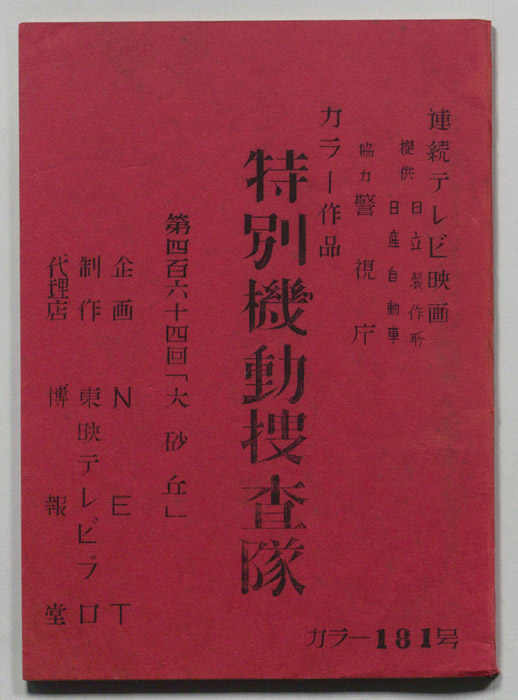 連続テレビ映画
提供 日立製作所
日産自動車
協力 警視庁
カラー作品
特別機動捜査隊
第四百六十四回「大砂丘」
企画 NET
制作 東映テレビ・プロ
代理店 博報堂
カラー181号